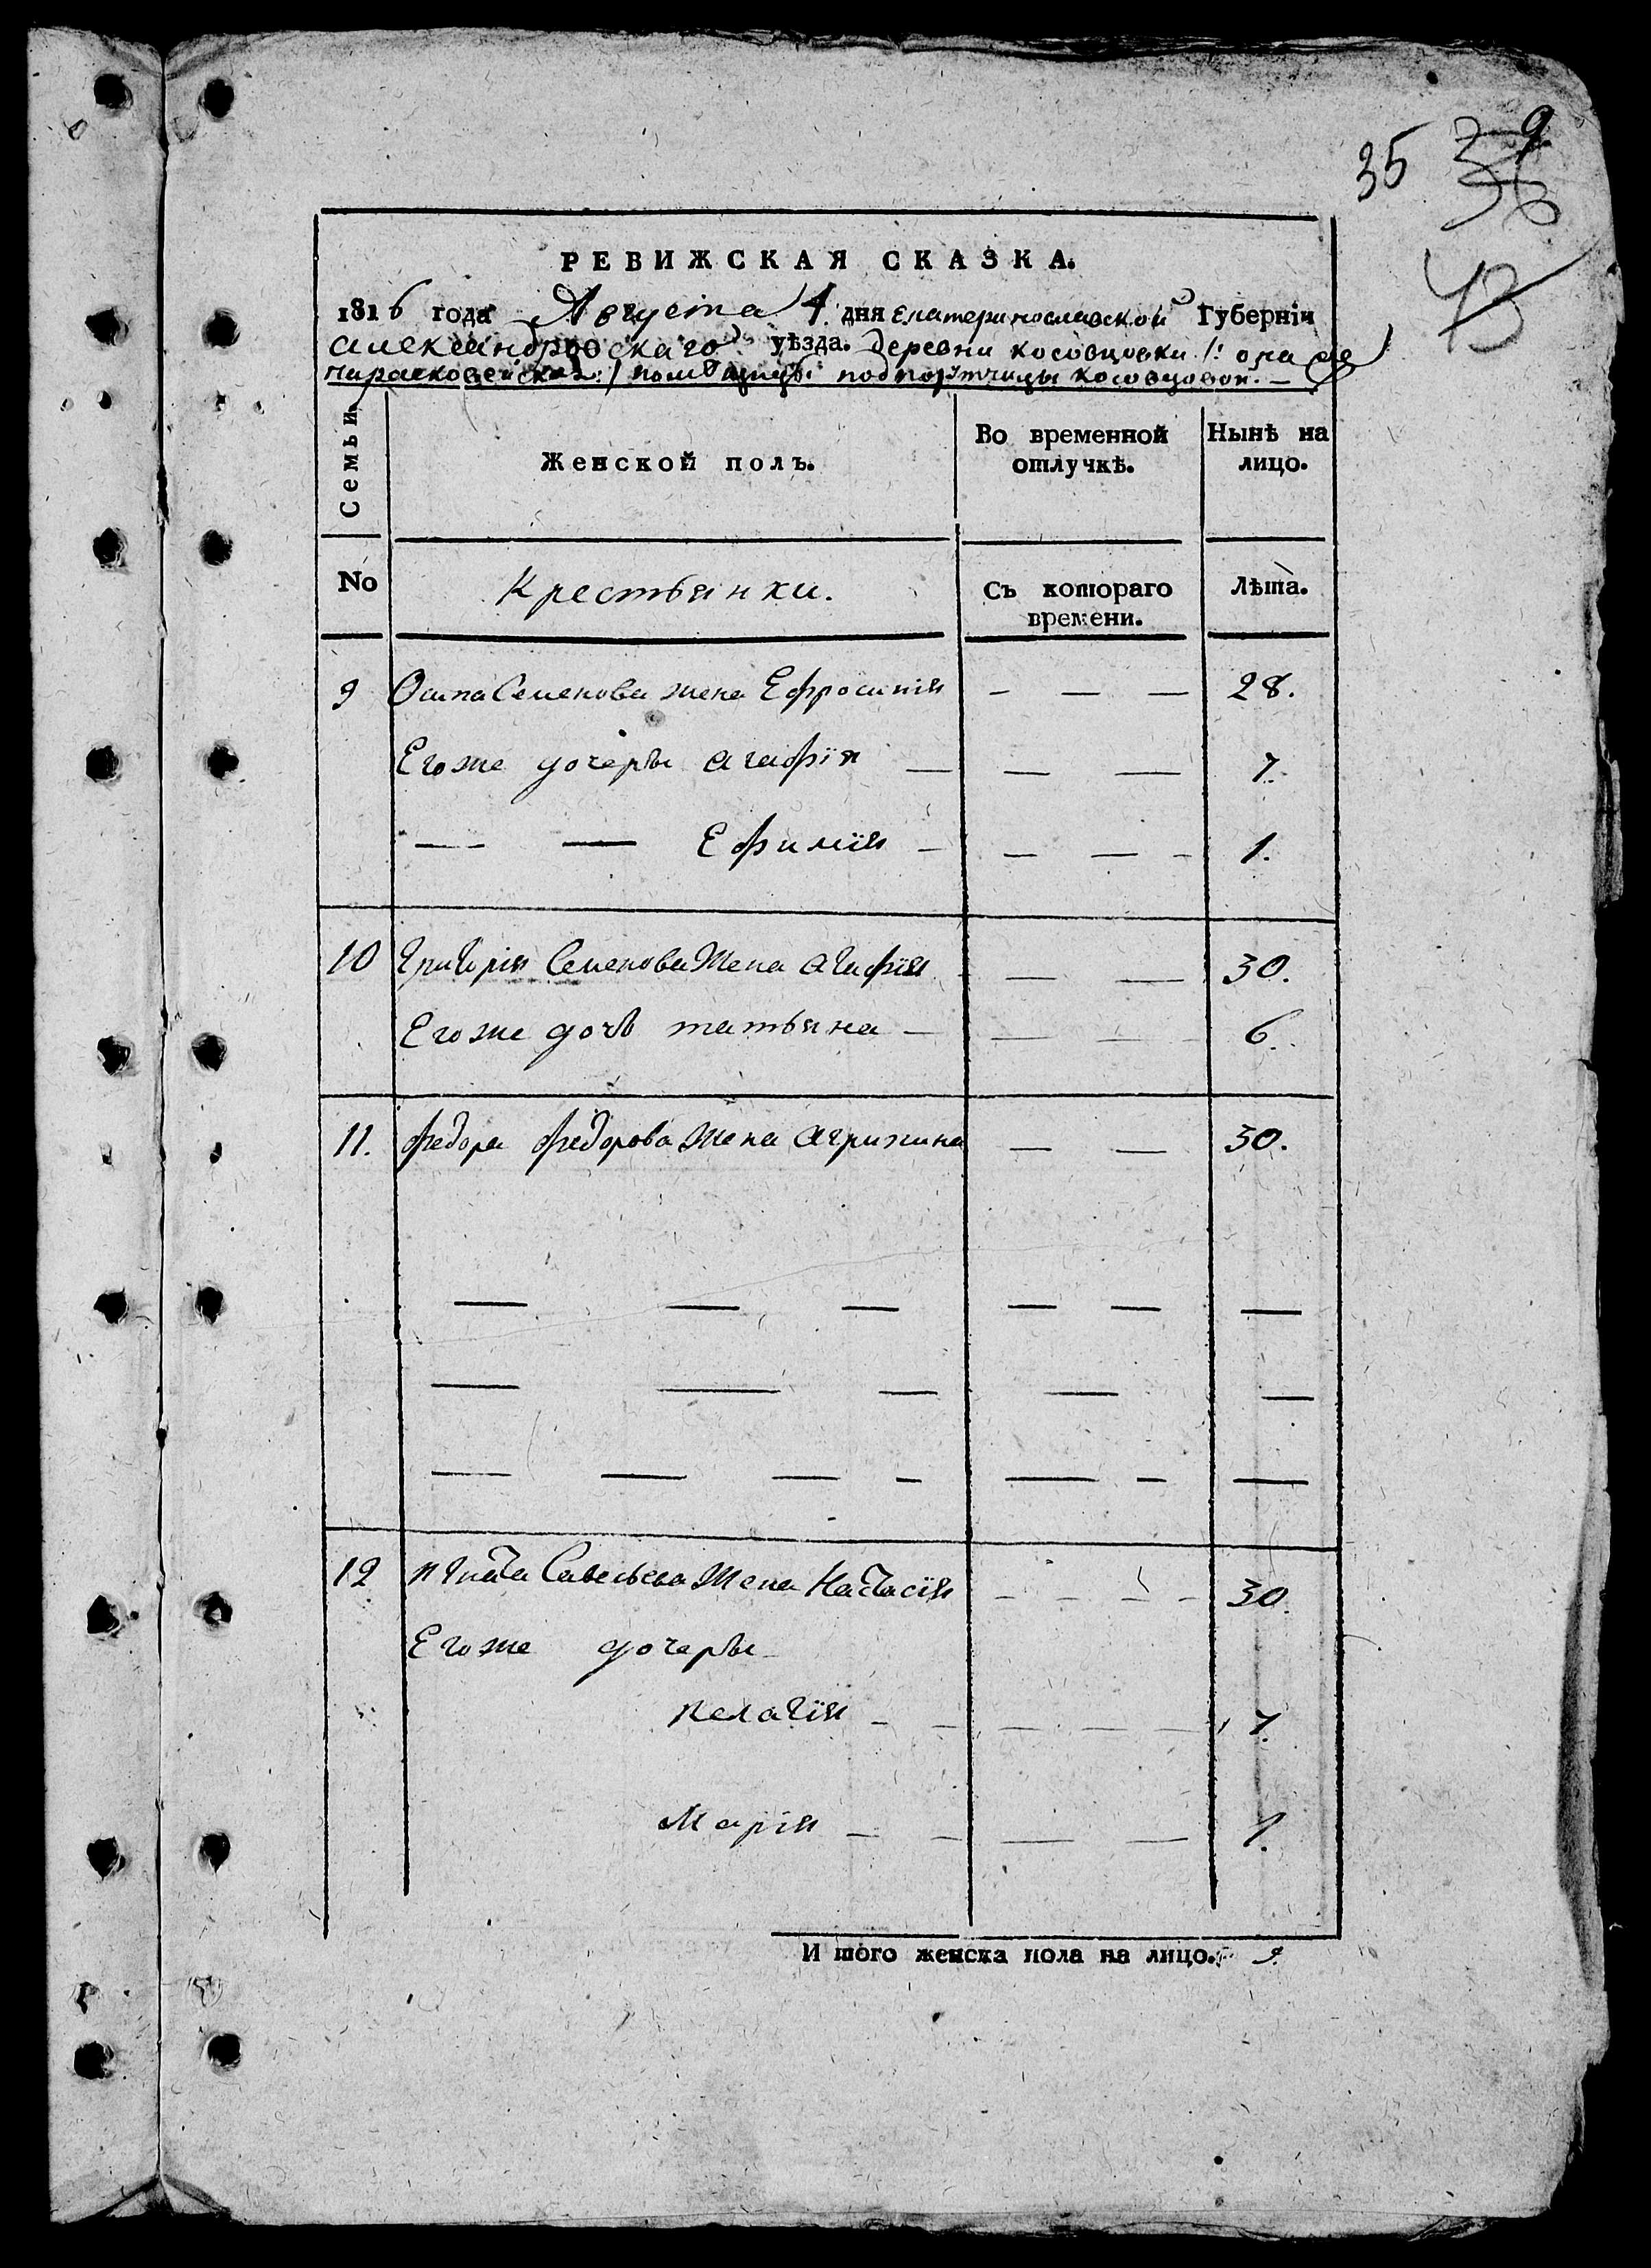 35 36 9
43
РЕВИЖСКАЯ СКАЗКА.
1816 года Августа 4 дня Екатеринославской Губернїи
Александровскаго уѣзда. Деревни Косовцовки /: она же
парасковейская :/ помѣщицы подпорутчицы Косовцовой. —
Семьи. Женской полъ. Во временной отлучкѣ. Нынѣ на лицо.
No Крестьянки. Съ котораго времени. Лѣта.
9 Осипа Семенова жена Ефросинїя — — — 28.
Егоже дочеры Агафїя — — — 7.
— — Ефимїя — — — - 1.
10 Григорїя Семенова жена Агафїя — — 30.
Егоже дочь татьяна — — — - 6.
11. Федора Федорова жена Агрипина — — 30.
— — — — — —
— — — — —
— — — - — - —
12 Игната Савельева жена Настасїя - - - - 30.
Егоже дочеры
пелагїя - - — - — 7.
Марїя — - — — 1.
И того женска пола на лицо. 9.